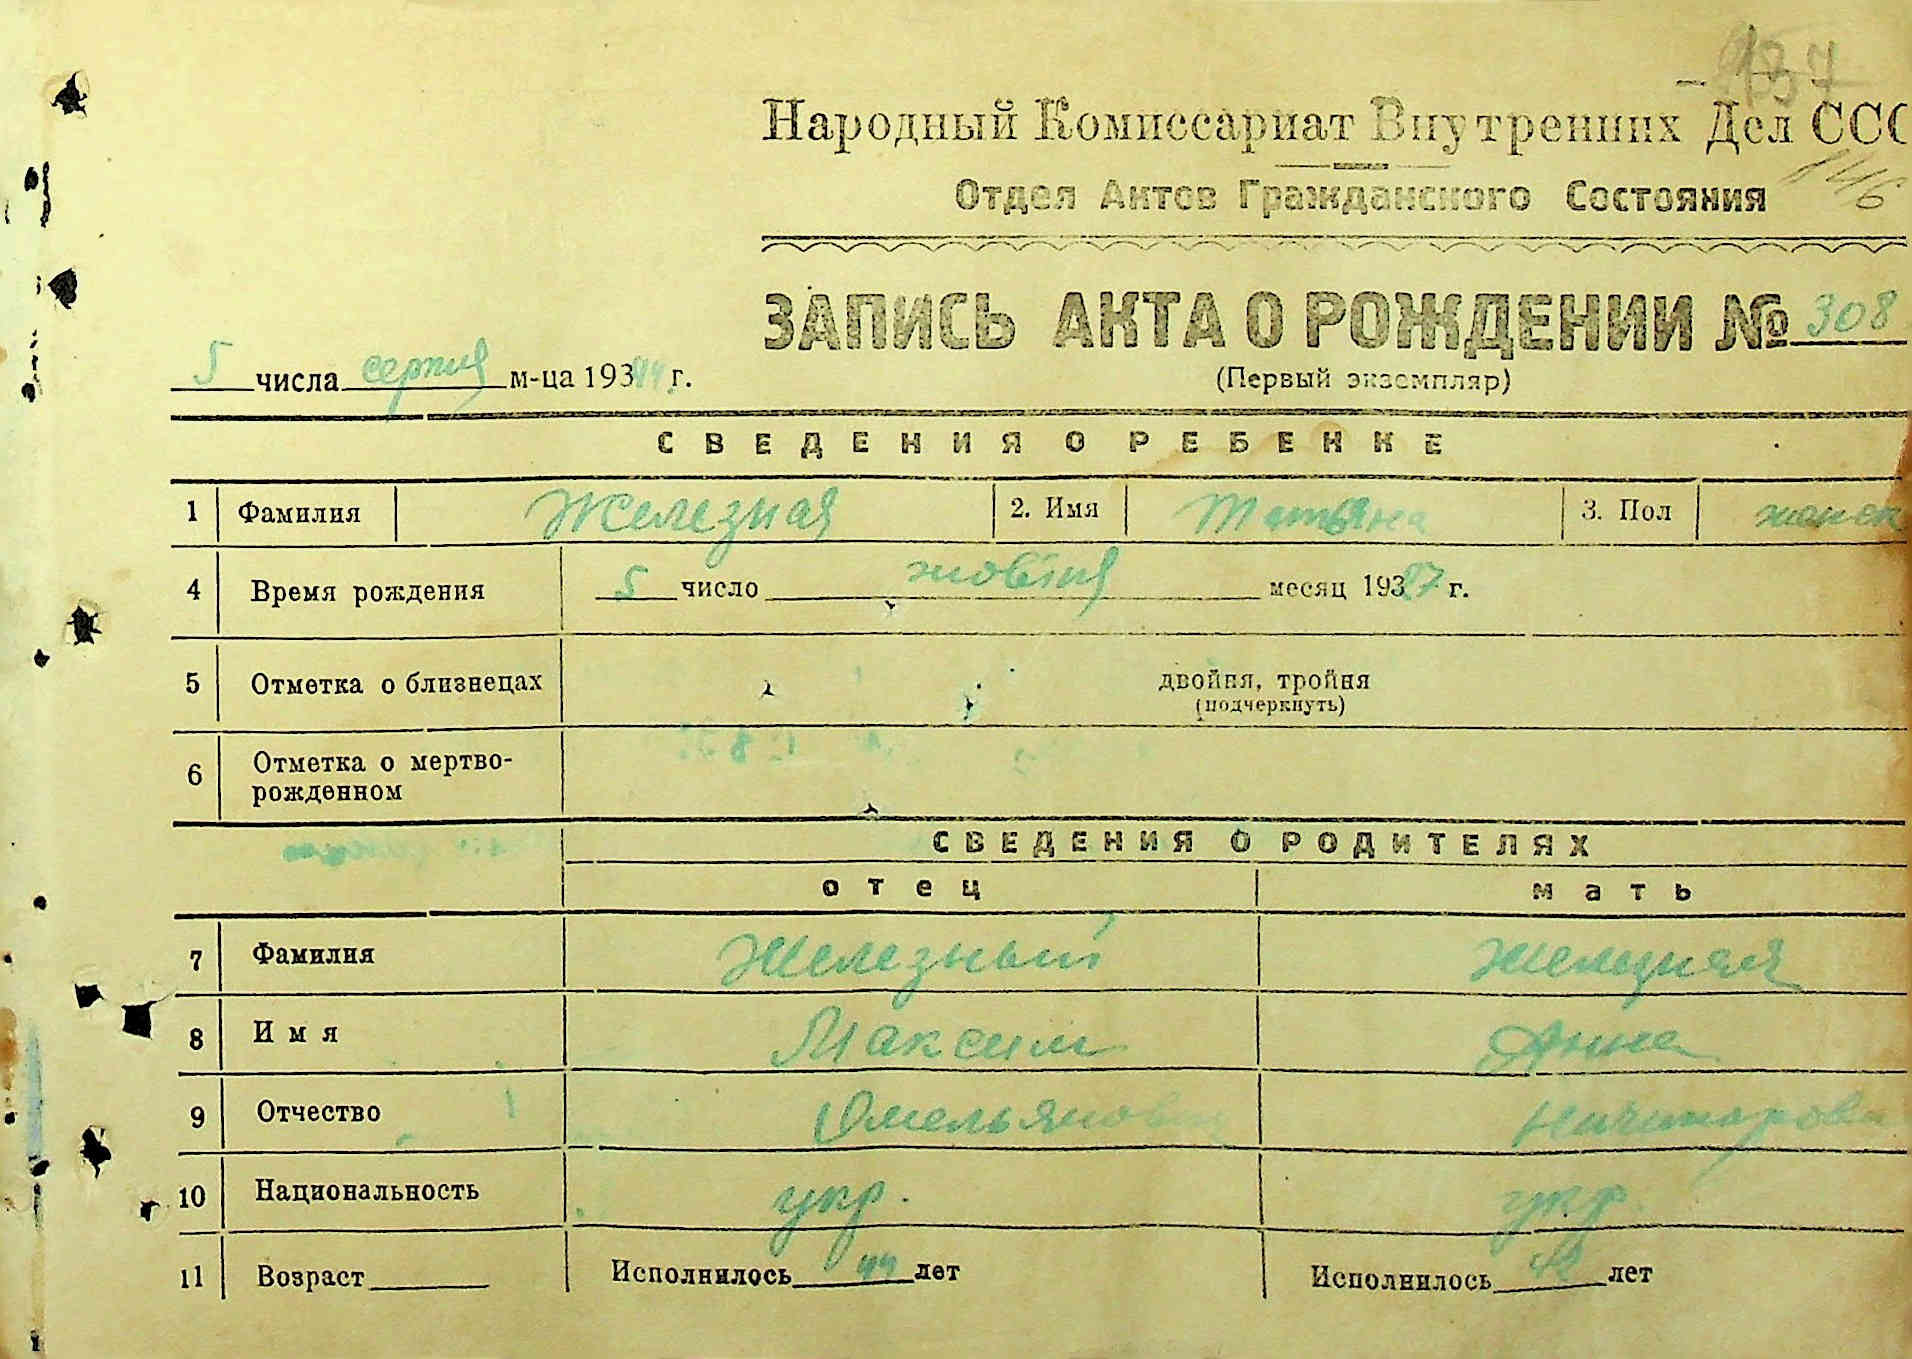 137
Народный Комиссариат Внутренних Дел ССС
146
Отдел Актов Гражданского Состояния
ЗАПИСЬ АКТА О РОЖДЕНИИ № 308
5 числа серпня м-ца 19344 г.
(Первый экземпляр)
СВЕДЕНИЯ О РЕБЕНКЕ
1 Фамилия Железная 2. Имя Татьяна 3. Пол женск
4 Время рождения 5 число жовтня месяц 19327 г.
5 Отметка о близнецах двойня, тройня
(подчеркнуть)
6 Отметка о мертво-
рожденном
СВЕДЕНИЯ О РОДИТЕЛЯХ
отец мать
7 Фамилия Железный Железная
8 Имя Максим Анна
9 Отчество Омельянович Ничипоровна
10 Национальность укр. укр.
11 Возраст Исполнилось 44 лет Исполнилось 42 лет